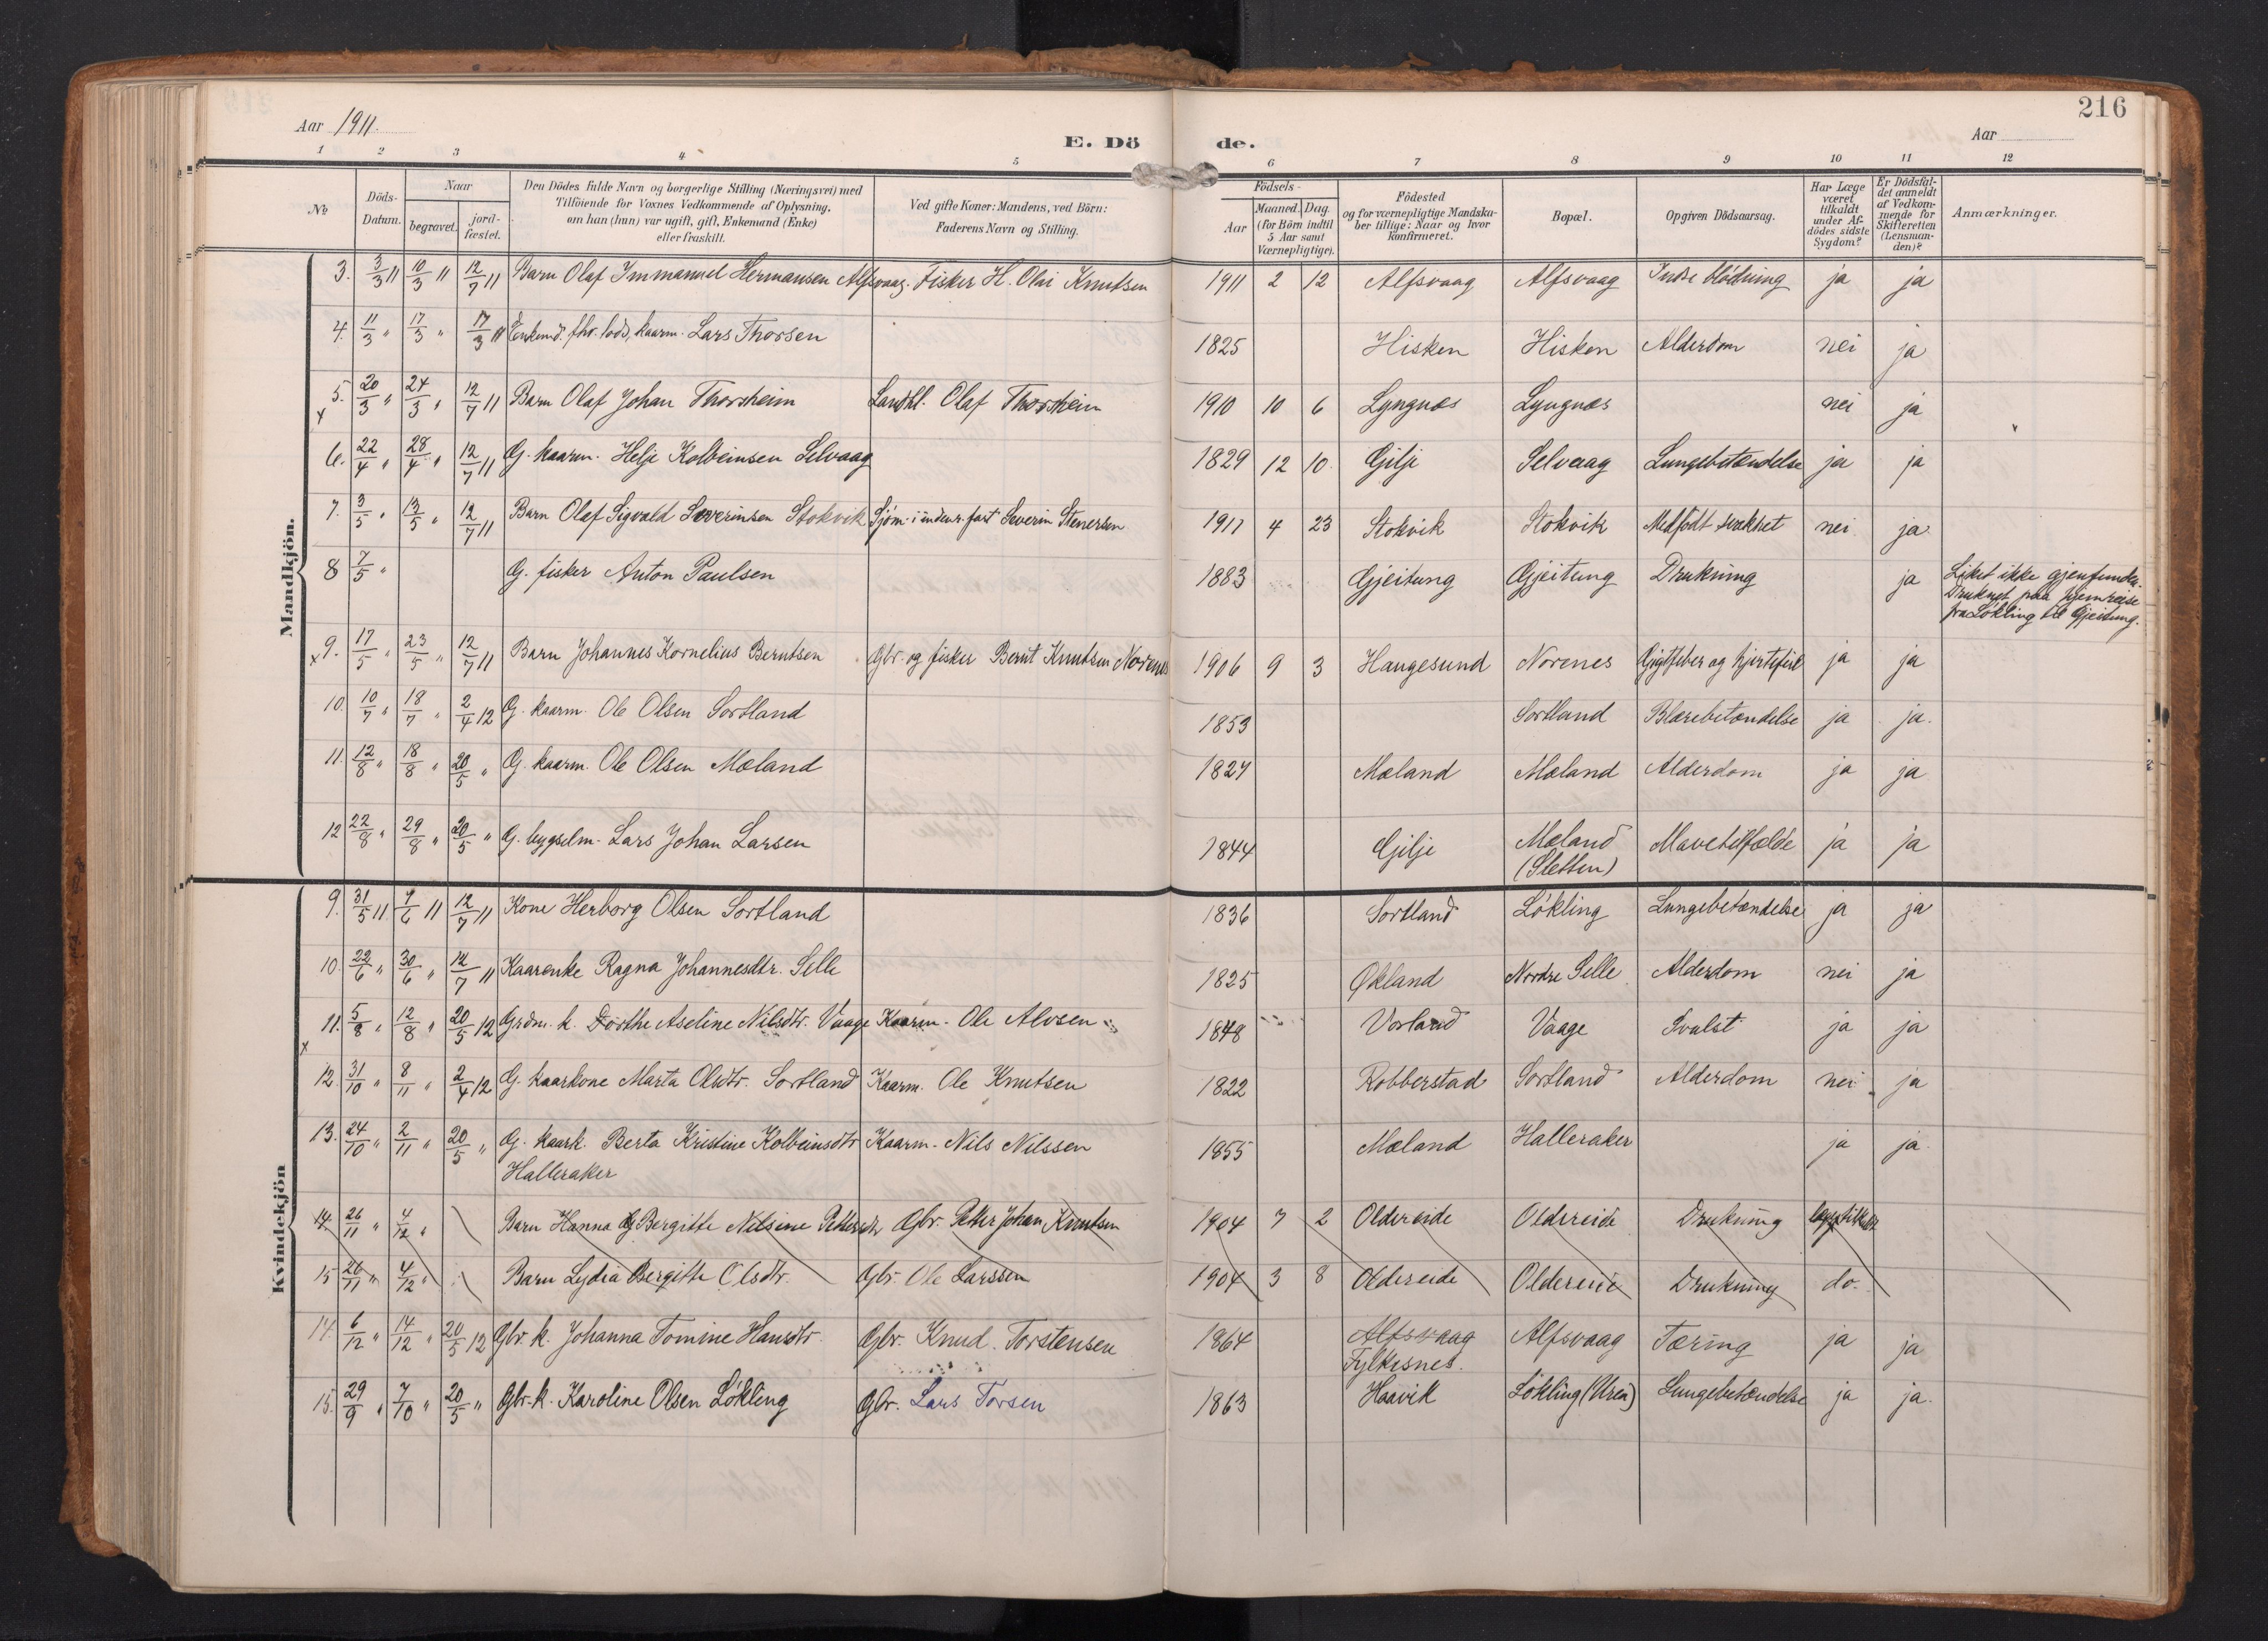 216
Aar 1911.
E. Dö
de.
Aar
1 2 3 4 5 6 7 8 9 10 11 12
No
Döds-Datum.
Naar
begravet.
jord-fæstet.
Den Dödes fulde Navn og borgerlige Stilling (Næringsvei) med
Tilföiende for Voxnes Vedkommende af Oplysning,
om han (hun) var ugift, gift, Enkemand (Enke)
eller fraskilt.
Ved gifte Koner: Mandens, ved Börn:
Faderens Navn og Stilling.
Födsels-
Aar
Maaned. Dag.
(for Börn indtil
5 Aar samt
Værnepligtige).
Födested
og for værnepligtige Mandska-
ber tillige: Naar og hvor
konfirmeret.
Bopæl.
Opgiven Dödsaarsag.
Har Læge
været
tilkaldt
under Af-
dödes sidste
Sygdom?
Er Dödsfal-
det anmeldt
af Vedkom-
mende for
Skifteretten
(Lensman-
den)?
Anmærkninger.
Mandkjön.
3. 3/3 11 10/3 11 12/7 11 Barn Olaf Immanuel Hermansen Alfsvaag. Fisker H. Olai Knutsen 1911 2 12 Alfsvaag Alfsvaag Indre blödning ja ja
4. 11/3 " 17/3 " 17/3 11 Enkemd. fhv. lods, kaarm. Lars Thorsen 1825 Hisken Hisken Alderdom nei ja
x 5. 20/3 " 24/3 " 12/7 11 Barn Olaf Johan Thorsheim Landhl. Olaf Thorsheim 1910 10 6 Lyngnæs Lyngnæs nei ja
6. 22/4 " 28/4 " 12/7 11 G. kaarm. Helje Kolbeinsen Selvaag 1829 12 10 Gilje Selvaag Lungebetændelse ja ja
7. 3/5 " 13/5 " 12/7 11 Barn Olaf Sigvald Severinsen Stokvik Sjöm. i indenr. fart Severin Stenersen 1911 4 23 Stokvik Stokvik Medfödt svakhet nei ja
8 7/5 " G. fisker Anton Paulsen 1883 Gjeitung Gjeitung Drukning ja Liket ikke gjenfunden.
Druknet paa hjemreise
fra Lökling til Gjeitung.
x 9. 17/5 " 23/5 " 12/7 11 Barn Johannes Kornelius Berntsen Gbr. og fisker Bernt Knutsen Norenes 1906 9 3 Haugesund Norenes Gigtfeber og hjertefeil ja ja
10. 10/7 " 18/7 " 2/4 12 G. kaarm. Ole Olsen Sortland 1853 Sortland Blærebetændelse ja ja.
11. 12/8 " 18/8 " 20/5 " G. kaarm. Ole Olsen Mæland 1827 Mæland Mæland Alderdom ja ja
12 22/8 " 29/8 " 20/5 " G. bygselm. Lars Johan Larsen 1844 Gilje Mæland
(Sletten) Mavetilfælde ja ja
Kvindekjön
9. 31/5 11 7/6 11 12/7 11 Kone Herborg Olsen Sortland 1836 Sortland Lökling Lungebetændelse ja ja
10. 22/6 " 30/6 " 12/7 11 Kaarenke Ragna Johannesdtr. Selle 1825 Økland Nordre Selle Alderdom nei ja
x 11. 5/8 " 12/8 " 20/5 12 Grdm. k. Dorthe Aseline Nilsdtr. Vaage Kaarm. Ole Alvsen 1848 Vorland Vaage Svulst ja ja
12. 31/10 " 8/11 " 2/4 12 G. kaarkone Marta Olsdtr. Sortland Kaarm. Ole Knutsen 1822 Robberstad Sortland Alderdom nei ja
13. 24/10 " 2/11 " 20/5 " G. kaark. Berta Kristine Kolbeinsdtr Kaarm. Nils Nilssen 1855 Mæland Halleraker ja ja
Halleraker
14 26/11 " 4/12 " Barn Hanna Bergitte Nilsine Pettersdtr Gbr. Petter Johan Knutsen 1904 7 2 Oldereide Oldereide Drukning
15 26/11 " 4/12 " Barn Lydia Bergitte Olsdtr. Gbr. Ole Larssen 1904 3 8 Oldereide Oldereide Drukning do.
14. 6/12 " 14/12 " 20/5 12 Gbr. k. Johanna Tomine Hansdtr. Gbr. Knud Torstensen 1864 Alfsvaag
Fylkesnes. Alfsvaag Tæring ja ja
15. 29/9 " 7/10 " 20/5 " Gbr. k. Karoline Olsen Lökling Gbr. Lars Torsen 1863 Haavik Lökling (Urea) Lungebetændelse ja ja.